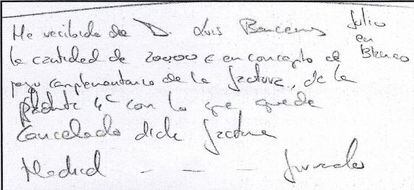 He recibido de D. Luis Barcenas
la cantidad de 20000 € en concepto de
pago complementario de la factura, de la
planta 4ª con lo que queda
Cancelada dicha factura
Madrid - - -
fecha
en
Blanco